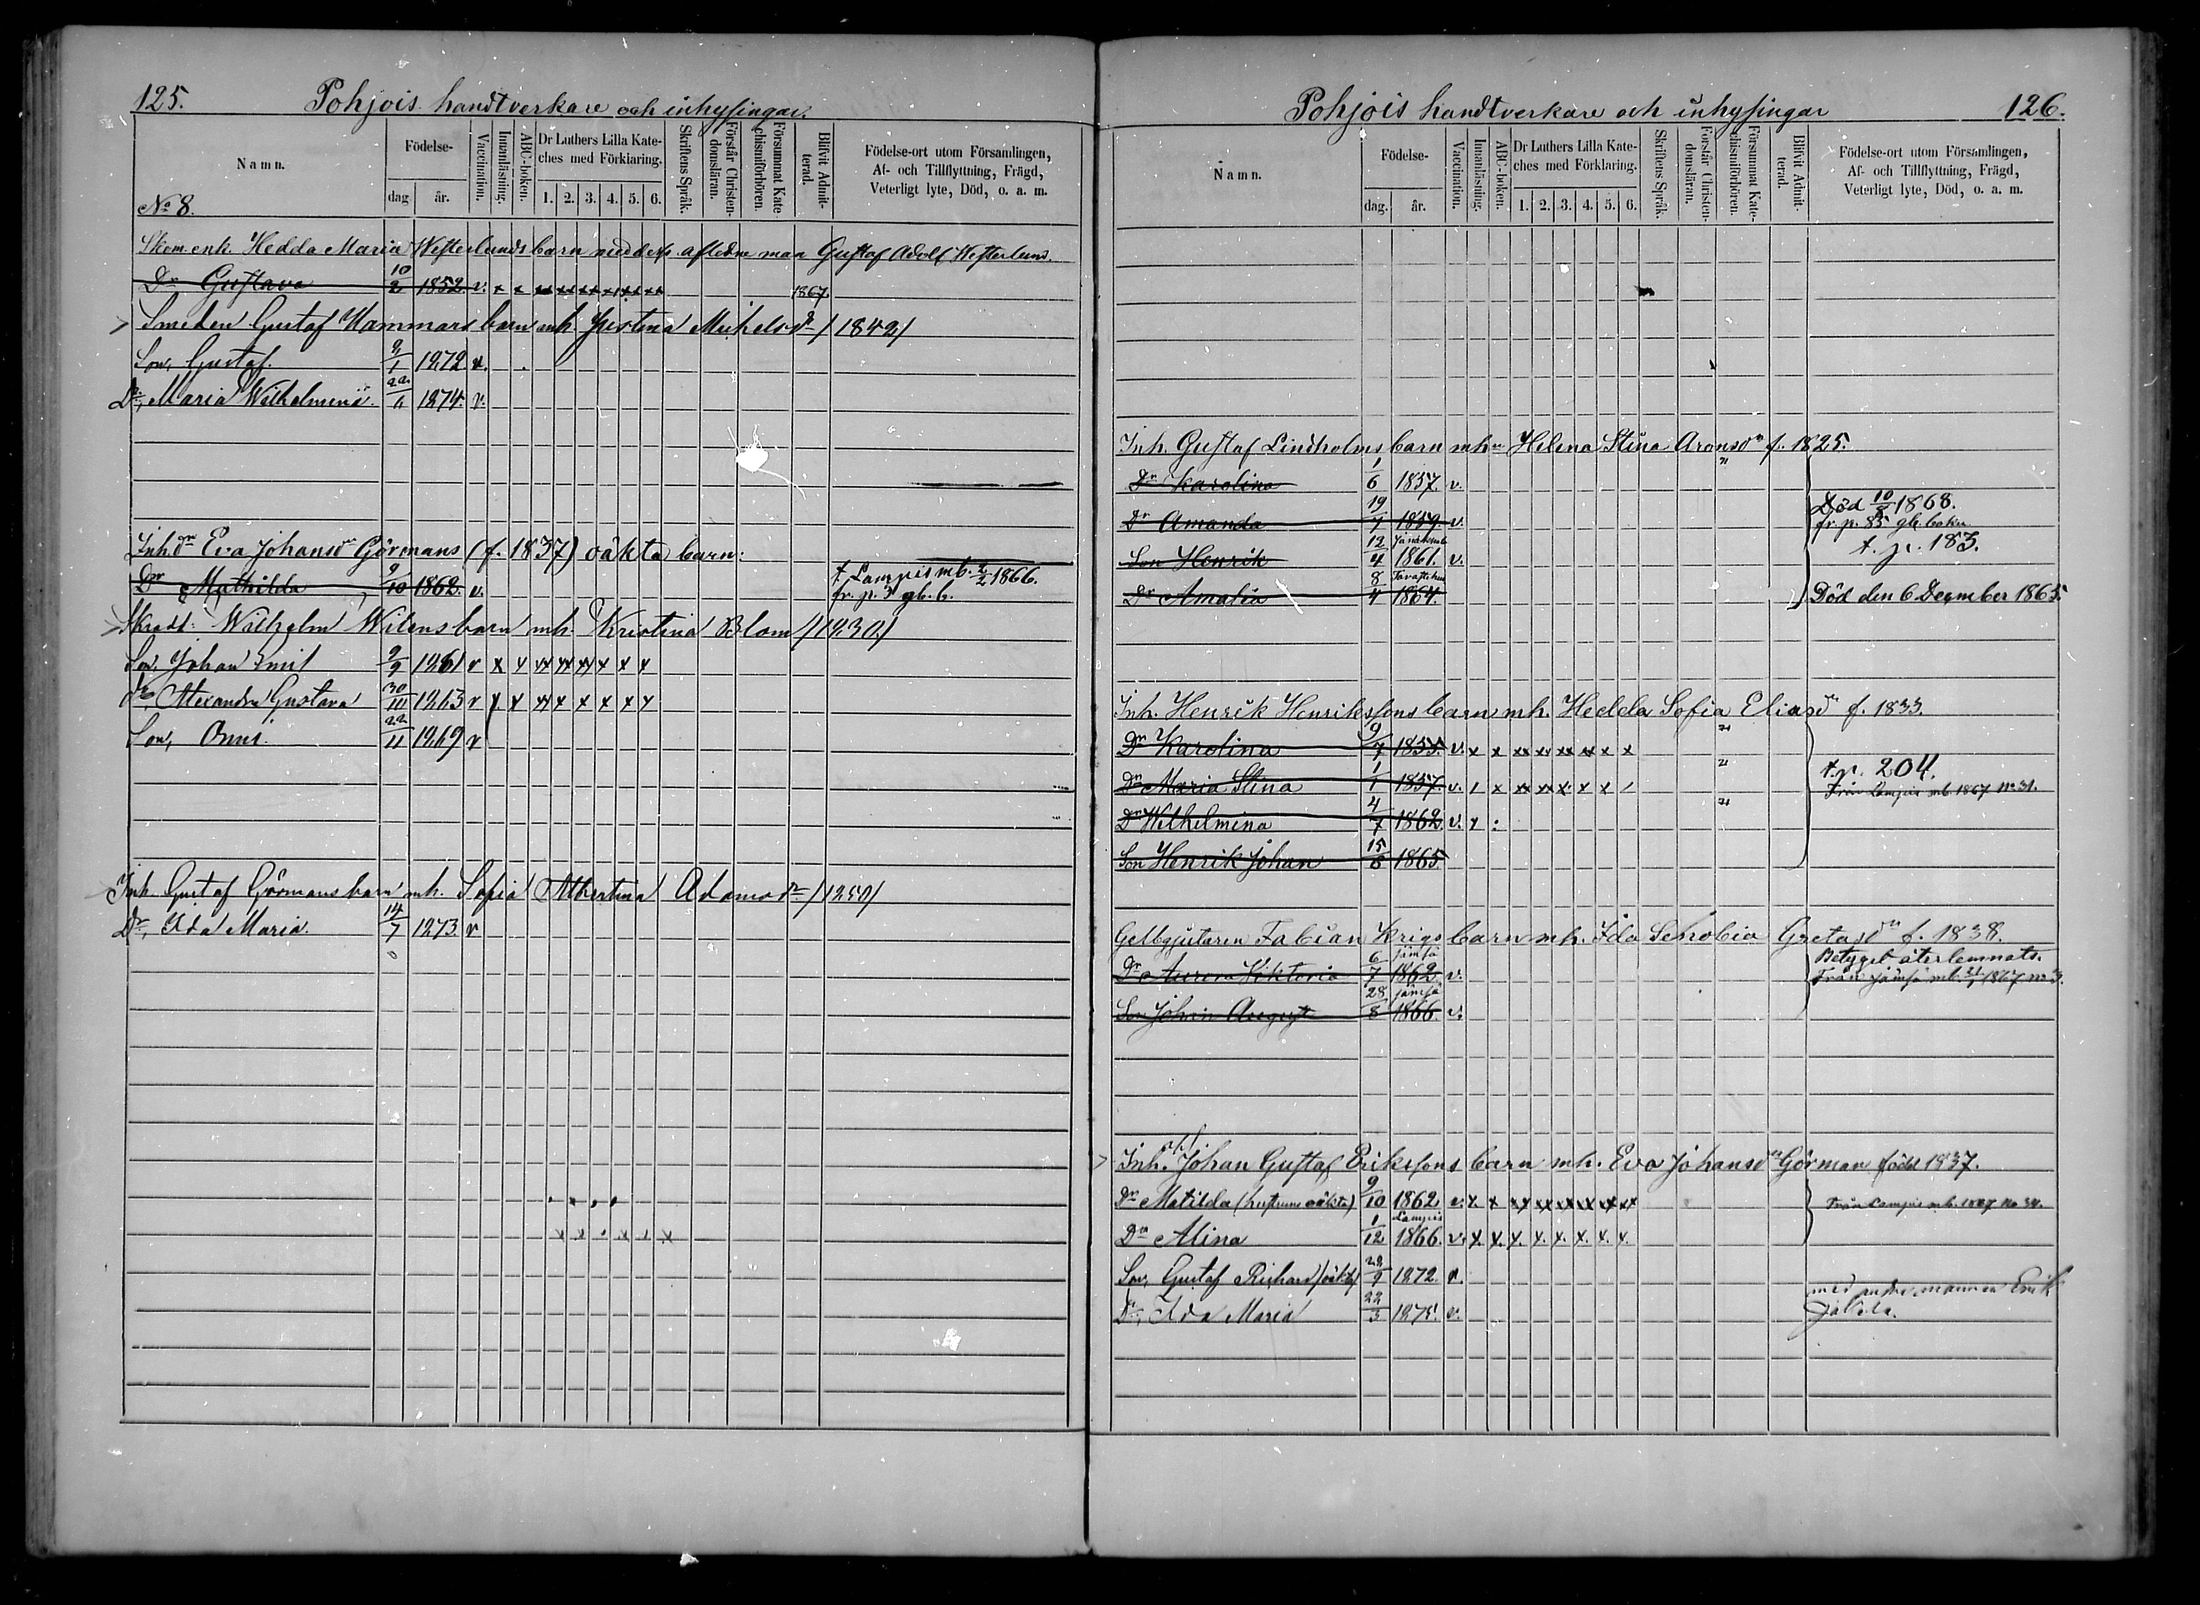 125.
Pohjois handtverkare och inhysingar.
Namn.
No 8.
Födelse-
dag
år.
Vaccination.
Innanläsning.
ABC-boken.
Dr Luthers Lilla Kate-
ches med Förklaring.
1. 2. 3. 4. 5. 6.
Skriftens Språk.
Förstår Christen-
domsläran.
Försummat Kate-
chismiförhören.
Blifvit Admit-
terad.
Födelse-ort utom Församlingen,
Af- och Tillflyttning, Frägd,
Veterligt lyte, Död, o. a. m.
Skom. enk. Hedda Maria Westerlunds barn med dess aflidne man Gustaf Adolf Westerlund.
Dr Gustava 10/2 1852 v. x x 1867.
Smeden Gustaf Hammars barn mh. Justina Michelsdr /1842/
Son, Gustaf. 9/1 1872 v.
Dr, Maria Wilhelmina. 22/11 1874. v.
Inh dr Eva Johansdr Görmans (f. 1837) oäkta barn:
Dr Mathilda 9/10 1862. v. t. Lampis mb. 2/2 1866.
fr. p. 3 gb. b.
Skradd: Wilhelm Wilens barn mh. Kristina Blom /1830/
Son, Johan Emil 9/9 1861 v x x xx xx xx x x x
dr, Alexandra Gustava 30/III 1863 v x x xx x x x x x
Son, Onni. 22/11 1869 v
Inh. Gustaf Görmans barn mh. Sofia Albertina Adamsdr /1850/
Dr, Ida Maria. 14/7 1873. v
Pohjois handtverkare och inhysingar
126.
Namn.
Födelse-
dag.
år.
Vaccination.
Innanläsning.
ABC-boken.
Dr Luthers Lilla Kate-
ches med Förklaring.
1. 2. 3. 4. 5. 6.
Skriftens Språk.
Förstår Christen-
domsläran.
Försummat Kate-
chismiförhören.
Blifvit Admit-
terad.
Födelse-ort utom Församlingen,
Af- och Tillflyttning, Frägd,
Veterligt lyte, Död, o. a. m.
Inh. Gustaf Lindholms barn mh Helena Stina Aronsdr f. 1825.
Dr Karolina 1/6 1857. v.
Dr Amanda 19/7 1859. v. Död 10/8 1868.
fr. p. 85 gb. boken
Son Henrik 12/4 1861. v. t. p. 183.
Dr Amalia 8/4 1864. Död den 6 December 1865.
Inh. Henrik Henrikssons barn mh. Hedda Sofia Eliasdr f. 1833.
Dr Karolina 9/7 1855. v. x x xx xx xx xx x x
Dr Maria Stina 1/1 1857. v. / x xx xx x x x / t. p. 204.
Från Lampis mb. 1867 no 31.
Dr Wilhelmina 4/7 1862 v. x :
Son Henrik Johan 15/8 1865
Gelbgjutaren Fabian Krigs barn mh. Ida Senobia Gretasdr f. 1838.
Betyget återlemnats.
Dr Aurora Viktoria 6/7 Jämsä 1862 v. Från Jämsä mb. 1867 no 3.
Son Johan August 28/8 Jämsä 1866. v.
Inh. Johan Gustaf Erikssons barn mh. Eva Johansdr Görman född 1837.
Dr Matilda (hustruns oäkta) 9/10 1862 v. x x xx xx xx xx xx xx Från Lampis mb. 1867 No 34.
Dr Alina 1/12 Lampis 1866. v. x. x. x. x. x. x. x. x.
Son, Gustaf Richard /oäkta/ 22/9 1872. v.
med andre mannen Erik
Dr, Ida Maria 22/3 1875. v. Jakola.